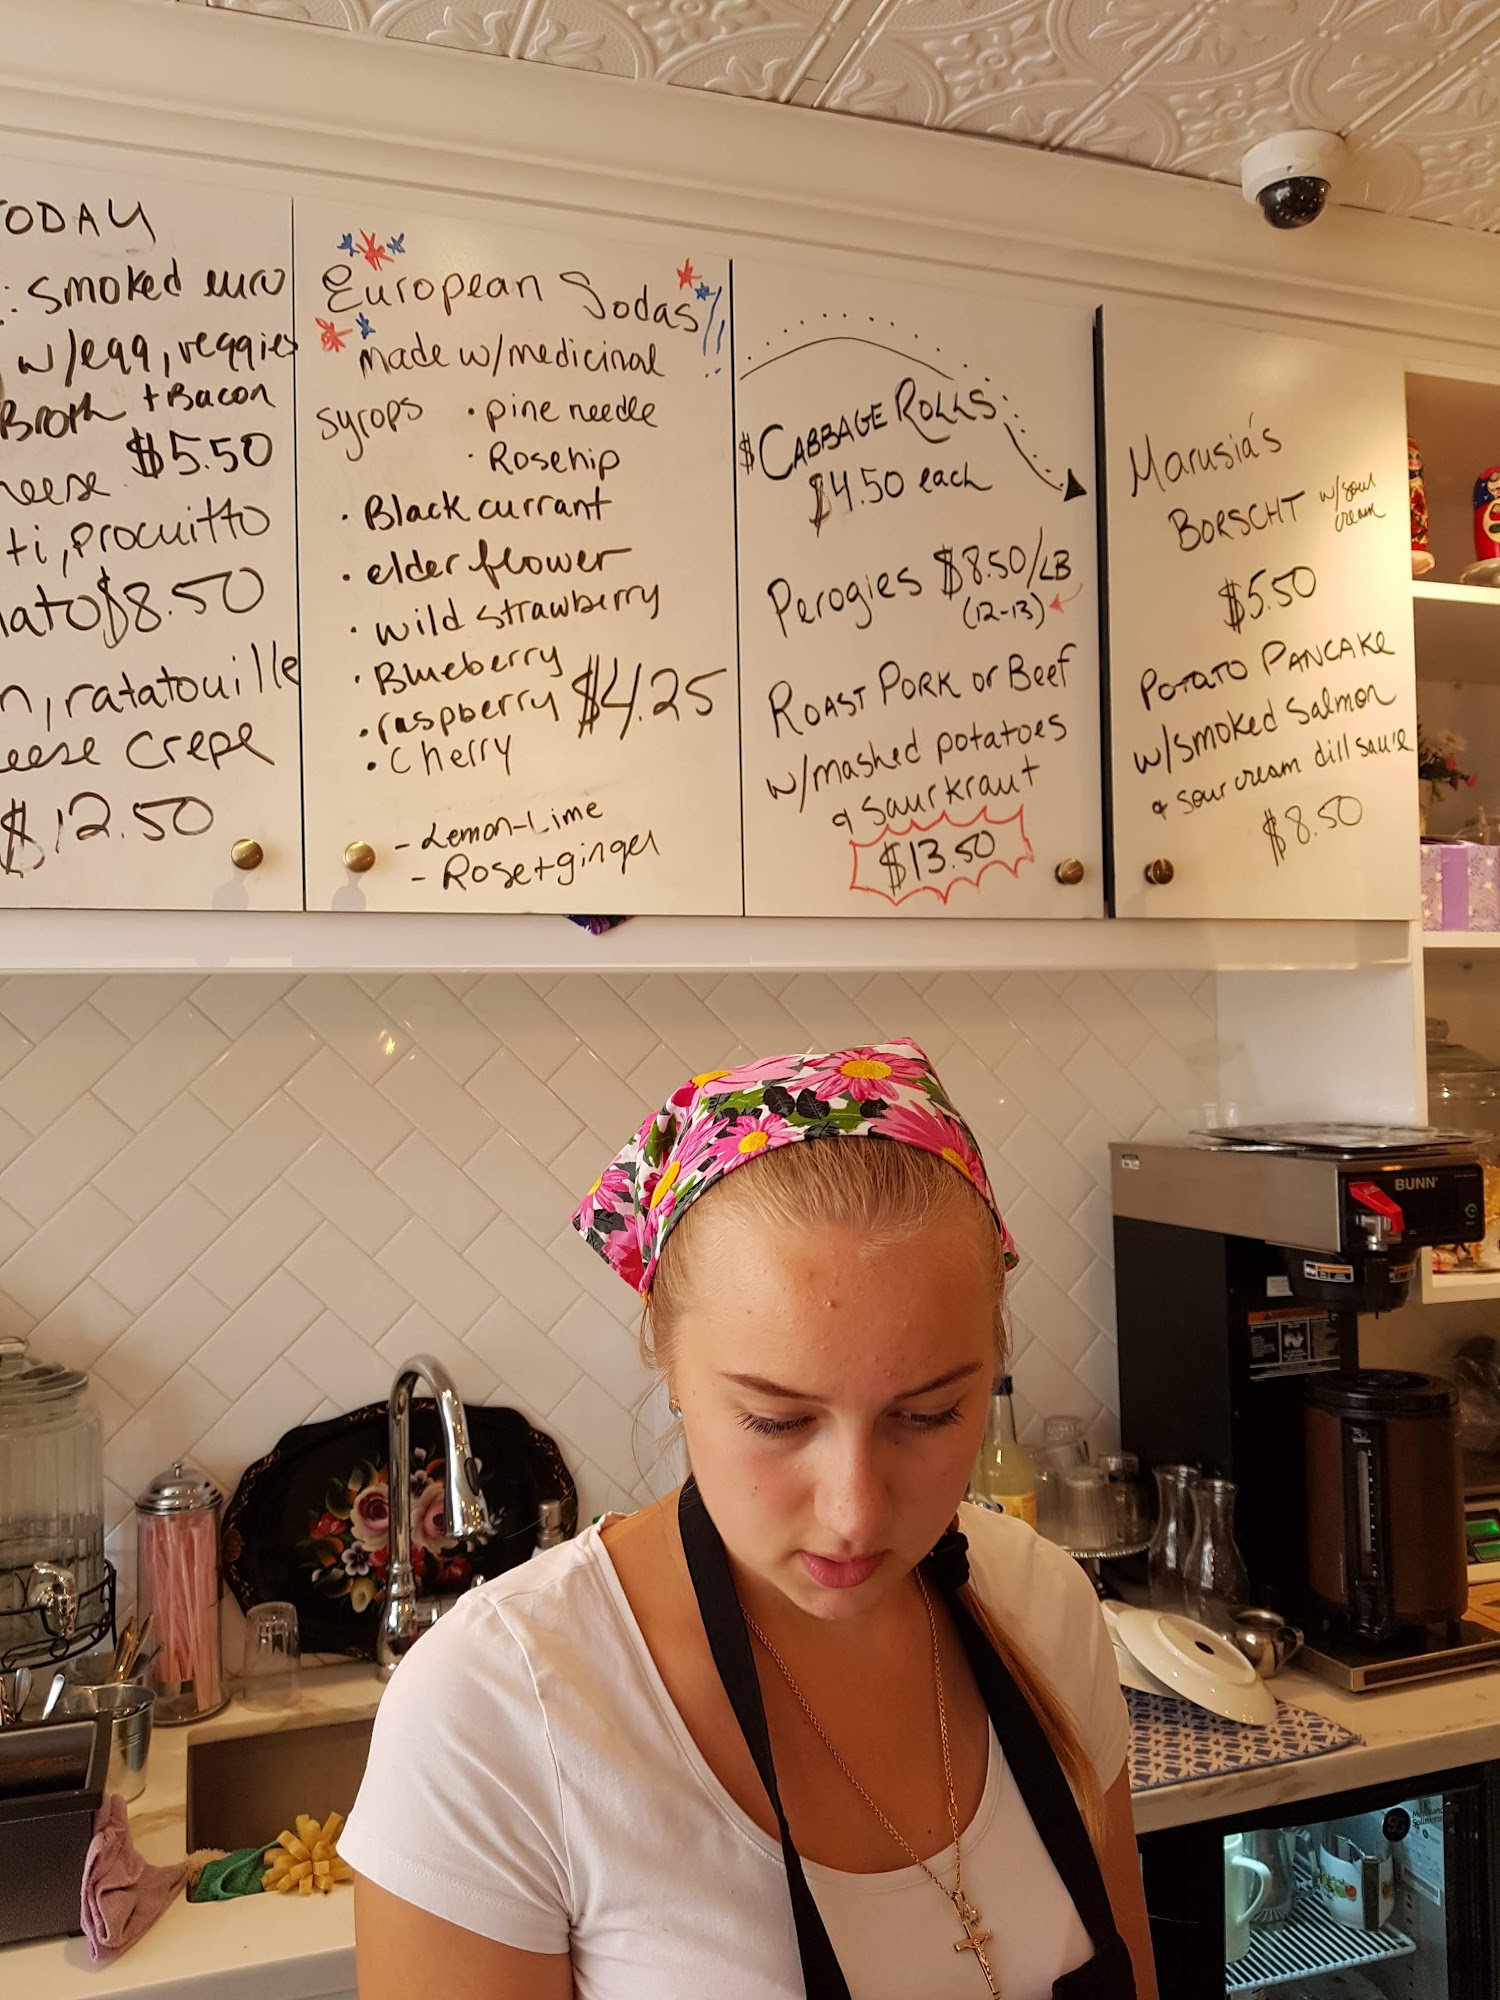 TODAY
: Smoked euro
w/egg, veggies
Broth + Bacon
$5.50
ti, procuitto
$8.50
ratatouille
Crepe
$12.50
European Sodas!!
made w/medicinal
syrops • pine needle
• Rosehip
• Black currant
• elder flower
• wild strawberry
• Blueberry
• raspberry $4.25
• Cherry
- Lemon-Lime
- Rose+ginger
$CABBAGE ROLLS
$4.50 each
Perogies $8.50/LB
(12-13)
ROAST PORK or Beef
w/mashed potatoes
& Saurkraut
$13.50
Marusia's
BORSCHT w/sour
cream
$5.50
POTATO PANCAKE
w/smoked Salmon
& sour cream dill sauce
$8.50
BUNN